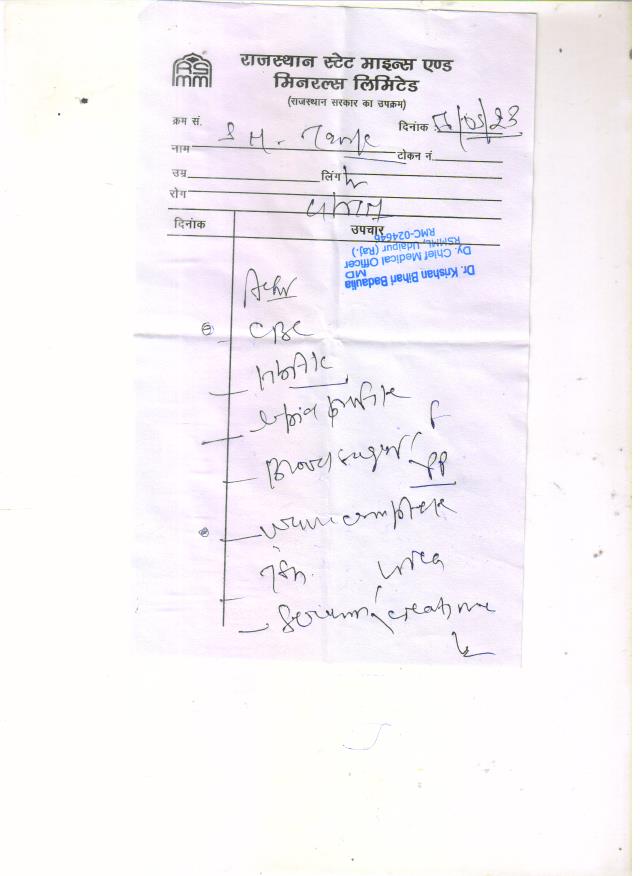 राजस्थान स्टेट माइन्स एण्ड
मिनरल्स लिमिटेड
(राजस्थान सरकार का उपक्रम)
क्रम सं.
दिनांक /05/23
नाम S.M. Tank टोकन नं.
उम्र लिंग
रोग
दिनांक उपचार
Dr. Krishan Bihari Badaulia
MD
Dy. Chief Medical Officer
RSMML, Udaipur (Raj.)
RMC-024646
Adv
CBC
HbA1c
Lipid profile
Blood sugar F
PP
urine complete
TSH urea
Serum creatinine